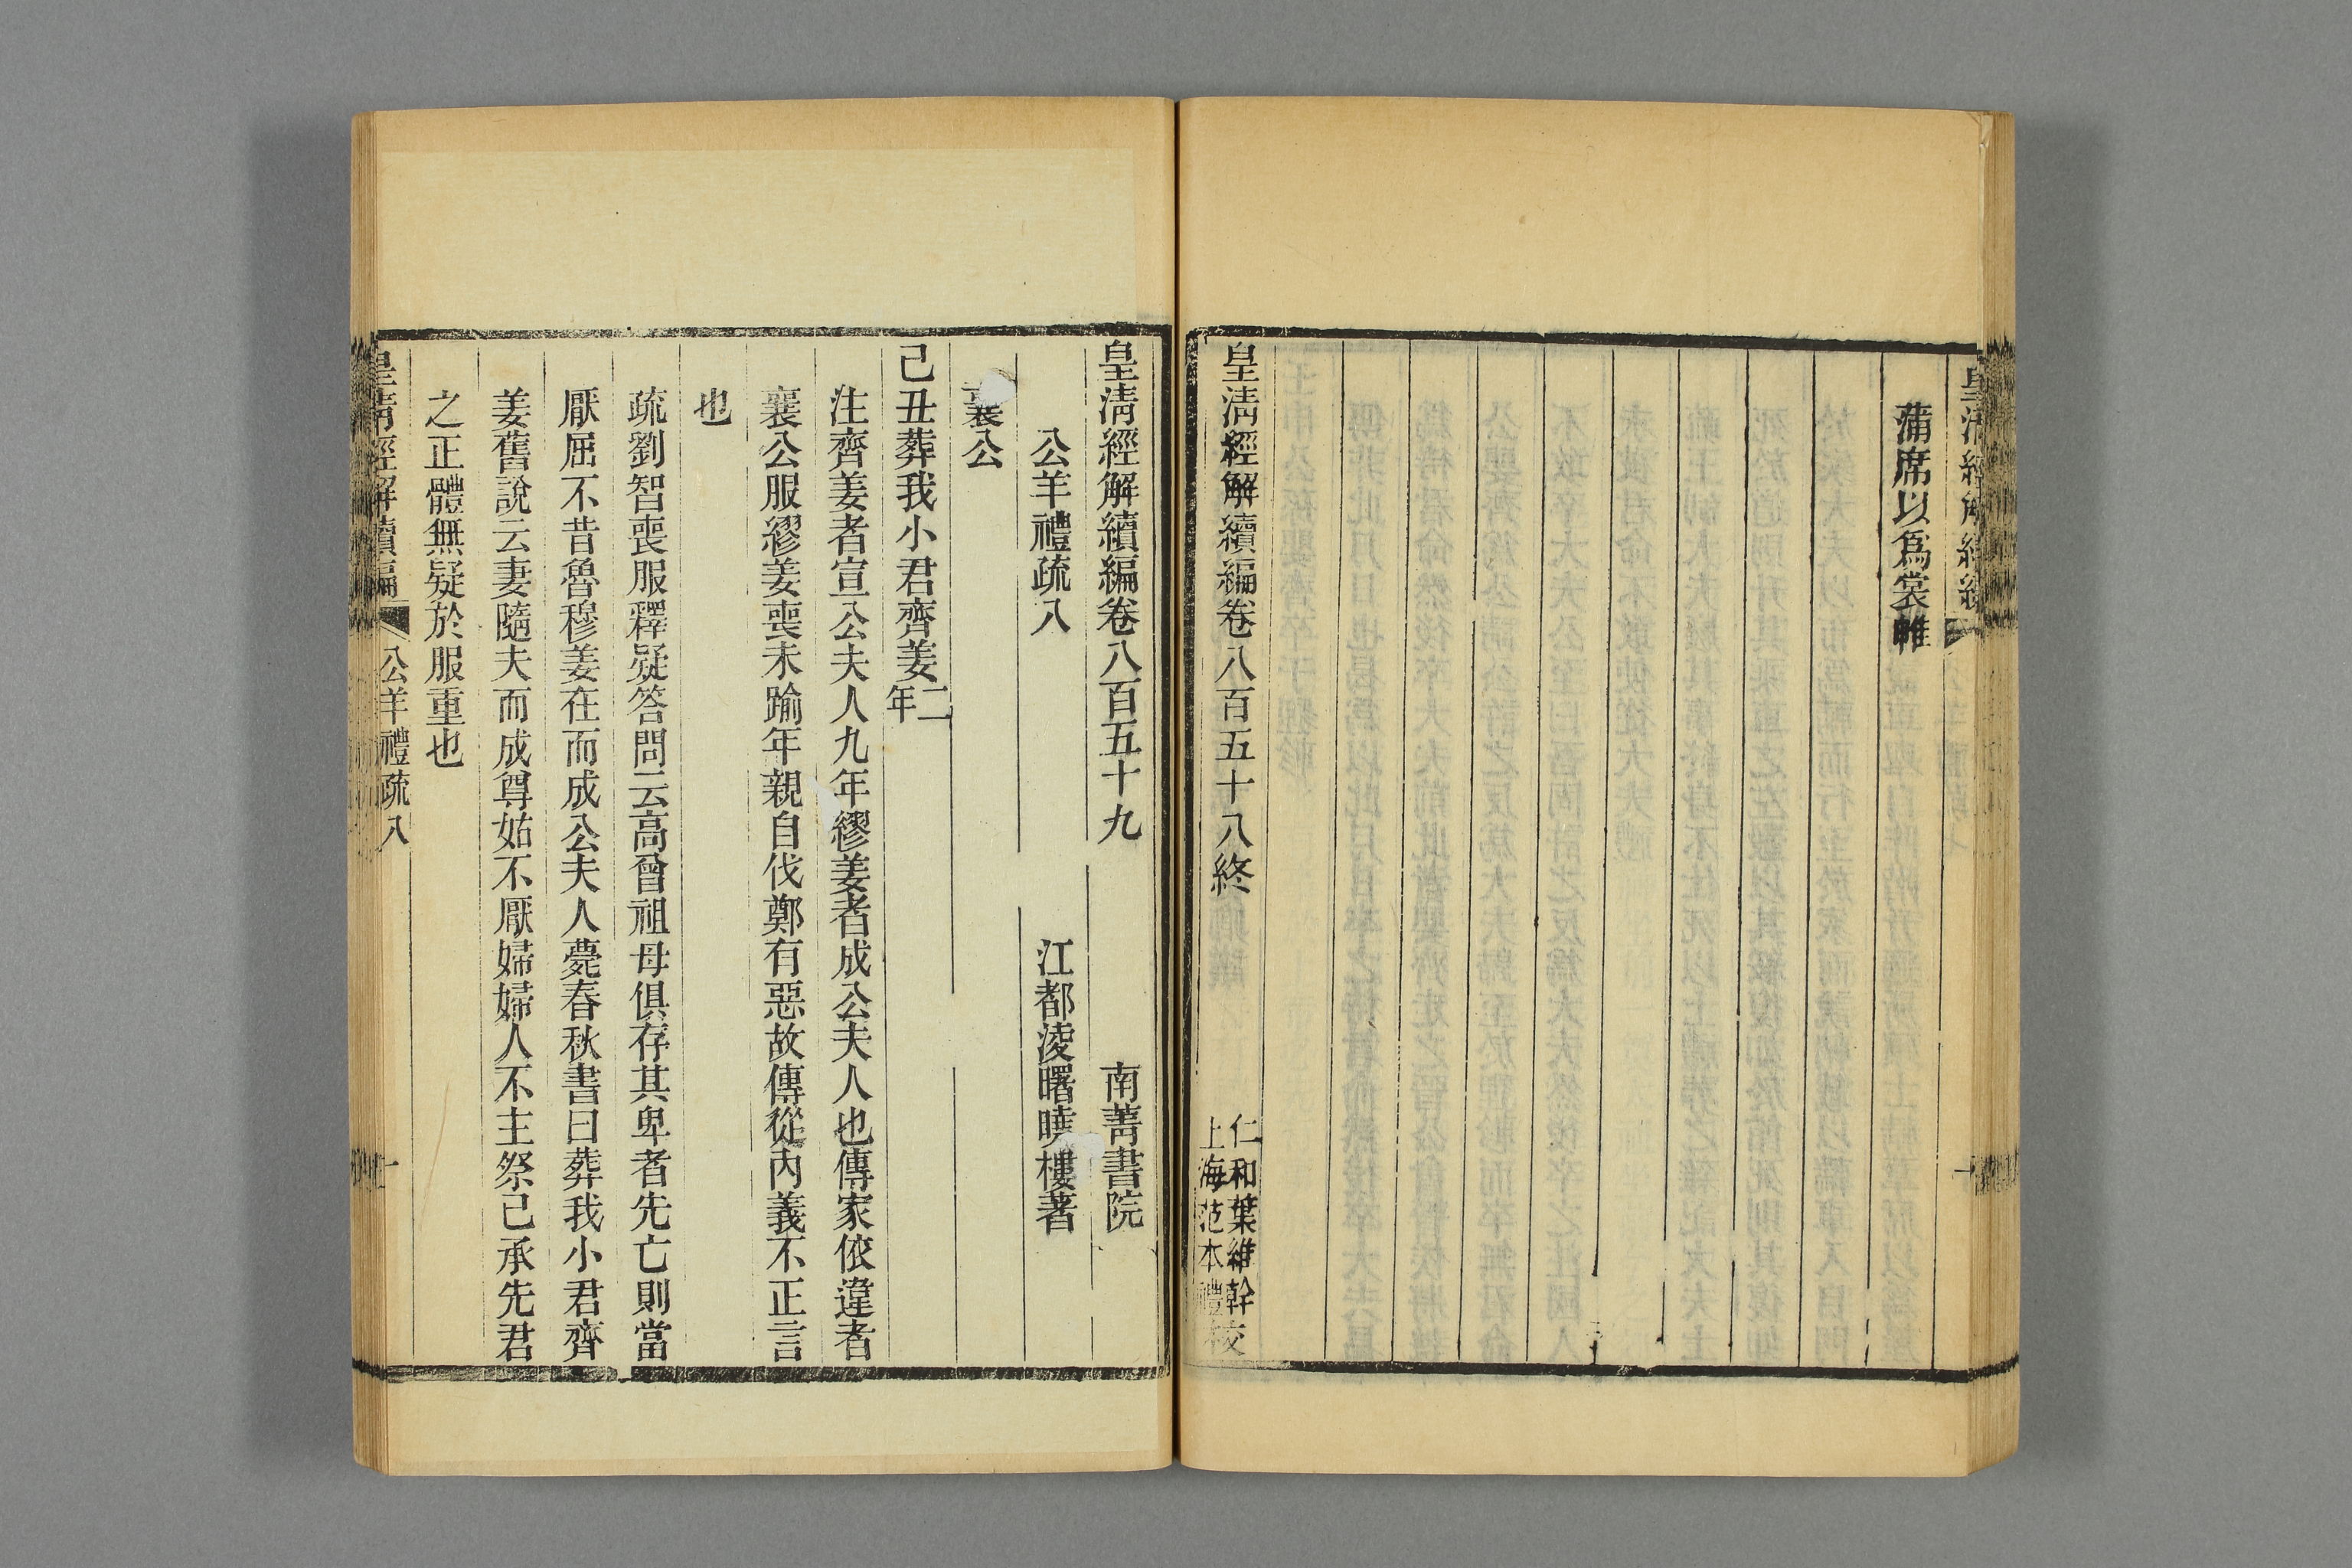 蒲席以爲裳帷
皇淸經解續編卷八百五十八終
仁和葉維幹校
上海范本禮校
皇淸經解續編卷八百五十九
南菁書院
公羊禮疏八
江都淩曙曉樓著
襄公
己丑葬我小君齊姜二年
注齊姜者宣公夫人九年繆姜者成公夫人也傳家依違者
襄公服繆姜喪未踰年親自伐鄭有惡故傳從內義不正言
也
疏劉智喪服釋疑答問云高曾祖母俱存其卑者先亡則當
厭屈不昔魯穆姜在而成公夫人薨春秋書曰葬我小君齊
姜舊說云妻隨夫而成尊姑不厭婦婦人不主祭己承先君
之正體無疑於服重也
皇淸經解續編
公羊禮疏八
一